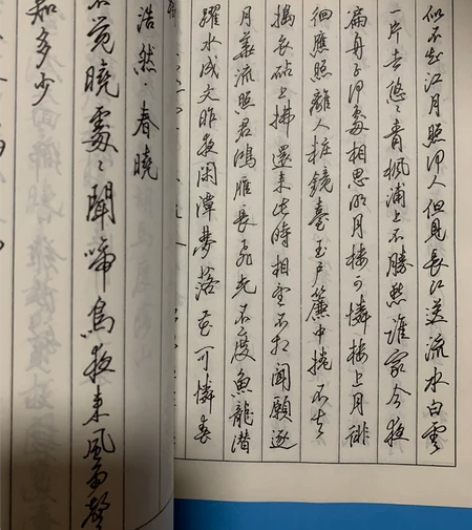 似不知江月照何人但見長江送流水白雲
一片去悠〻青楓浦上不勝愁誰家今夜
扁舟子何處相思明月樓可憐樓上月徘
徊應照離人粧鏡臺玉戶簾中捲不去
搗衣砧上拂還來此時相望不相聞願逐
月華流照君鴻雁長飛光不度魚龍潛
躍水成文昨夜閑潭夢落花可憐春
浩然·春曉
不覺曉處〻聞啼鳥夜來風雨聲
知多少